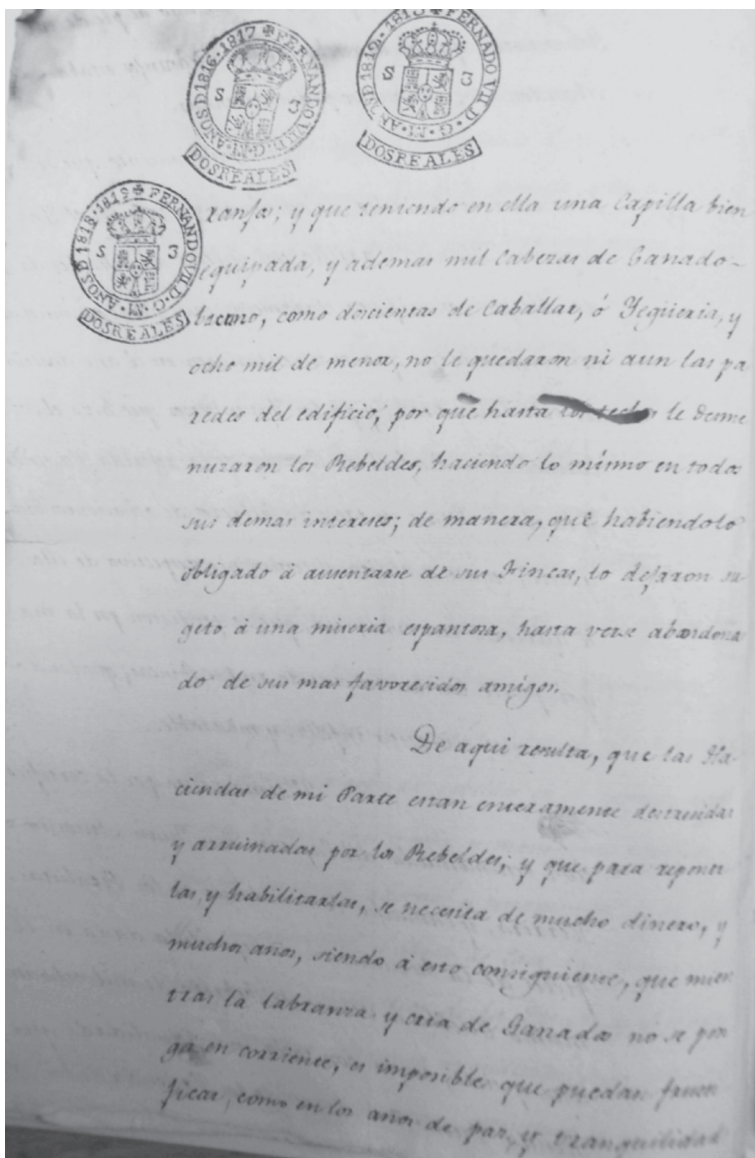 FERNANDO VII. D. G. ANOS D 1816. 1817
S 3
DOS REALES
FERNANDO VII. D. G.
S 3
DOS REALES
FERNANDO VII. D. G. ANOS D 1818. 1819
S 3
DOS REALES
ranfas; y que teniendo en ella una Capilla bien
equipada, y ademas mil Cabezas de Ganado
bacuno, como doscientas de Caballar, ó Yegüeria, y
ocho mil de menor, no le quedaron ni aun las pa
redes del edificio, por que hasta los techos le desme
nuzaron los Rebeldes, haciendo lo mismo en todos
sus demas intereses; de manera, que habiendolo
obligado á ausentarse de sus Fincas, lo dejaron su
geto á una miseria espantosa, hasta verse abandona
do de sus mas favorecidos amigos.
De aqui resulta, que las Ha-
ciendas de mi Parte estan enteramente destruidas
y arruinadas por los Rebeldes; y que para reponer
las, y habilitarlas, se necesita de mucho dinero, y
muchos años, siendo á esto consiguiente, que mien
tras la labranza y cria de Ganados no se pon
ga en corriente, es imposible que puedan fructi
ficar, como en los años de paz, y tranquilidad